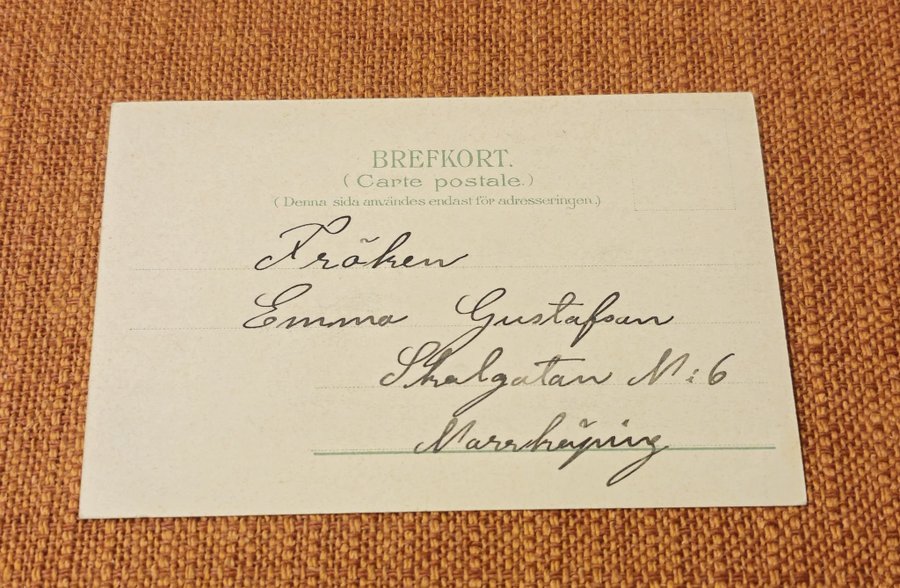 BREFKORT.
(Carte postale.)
(Denna sida användes endast för adresseringen.)
Fröken
Emma Gustafson
Skolgatan N:6
Norrköping